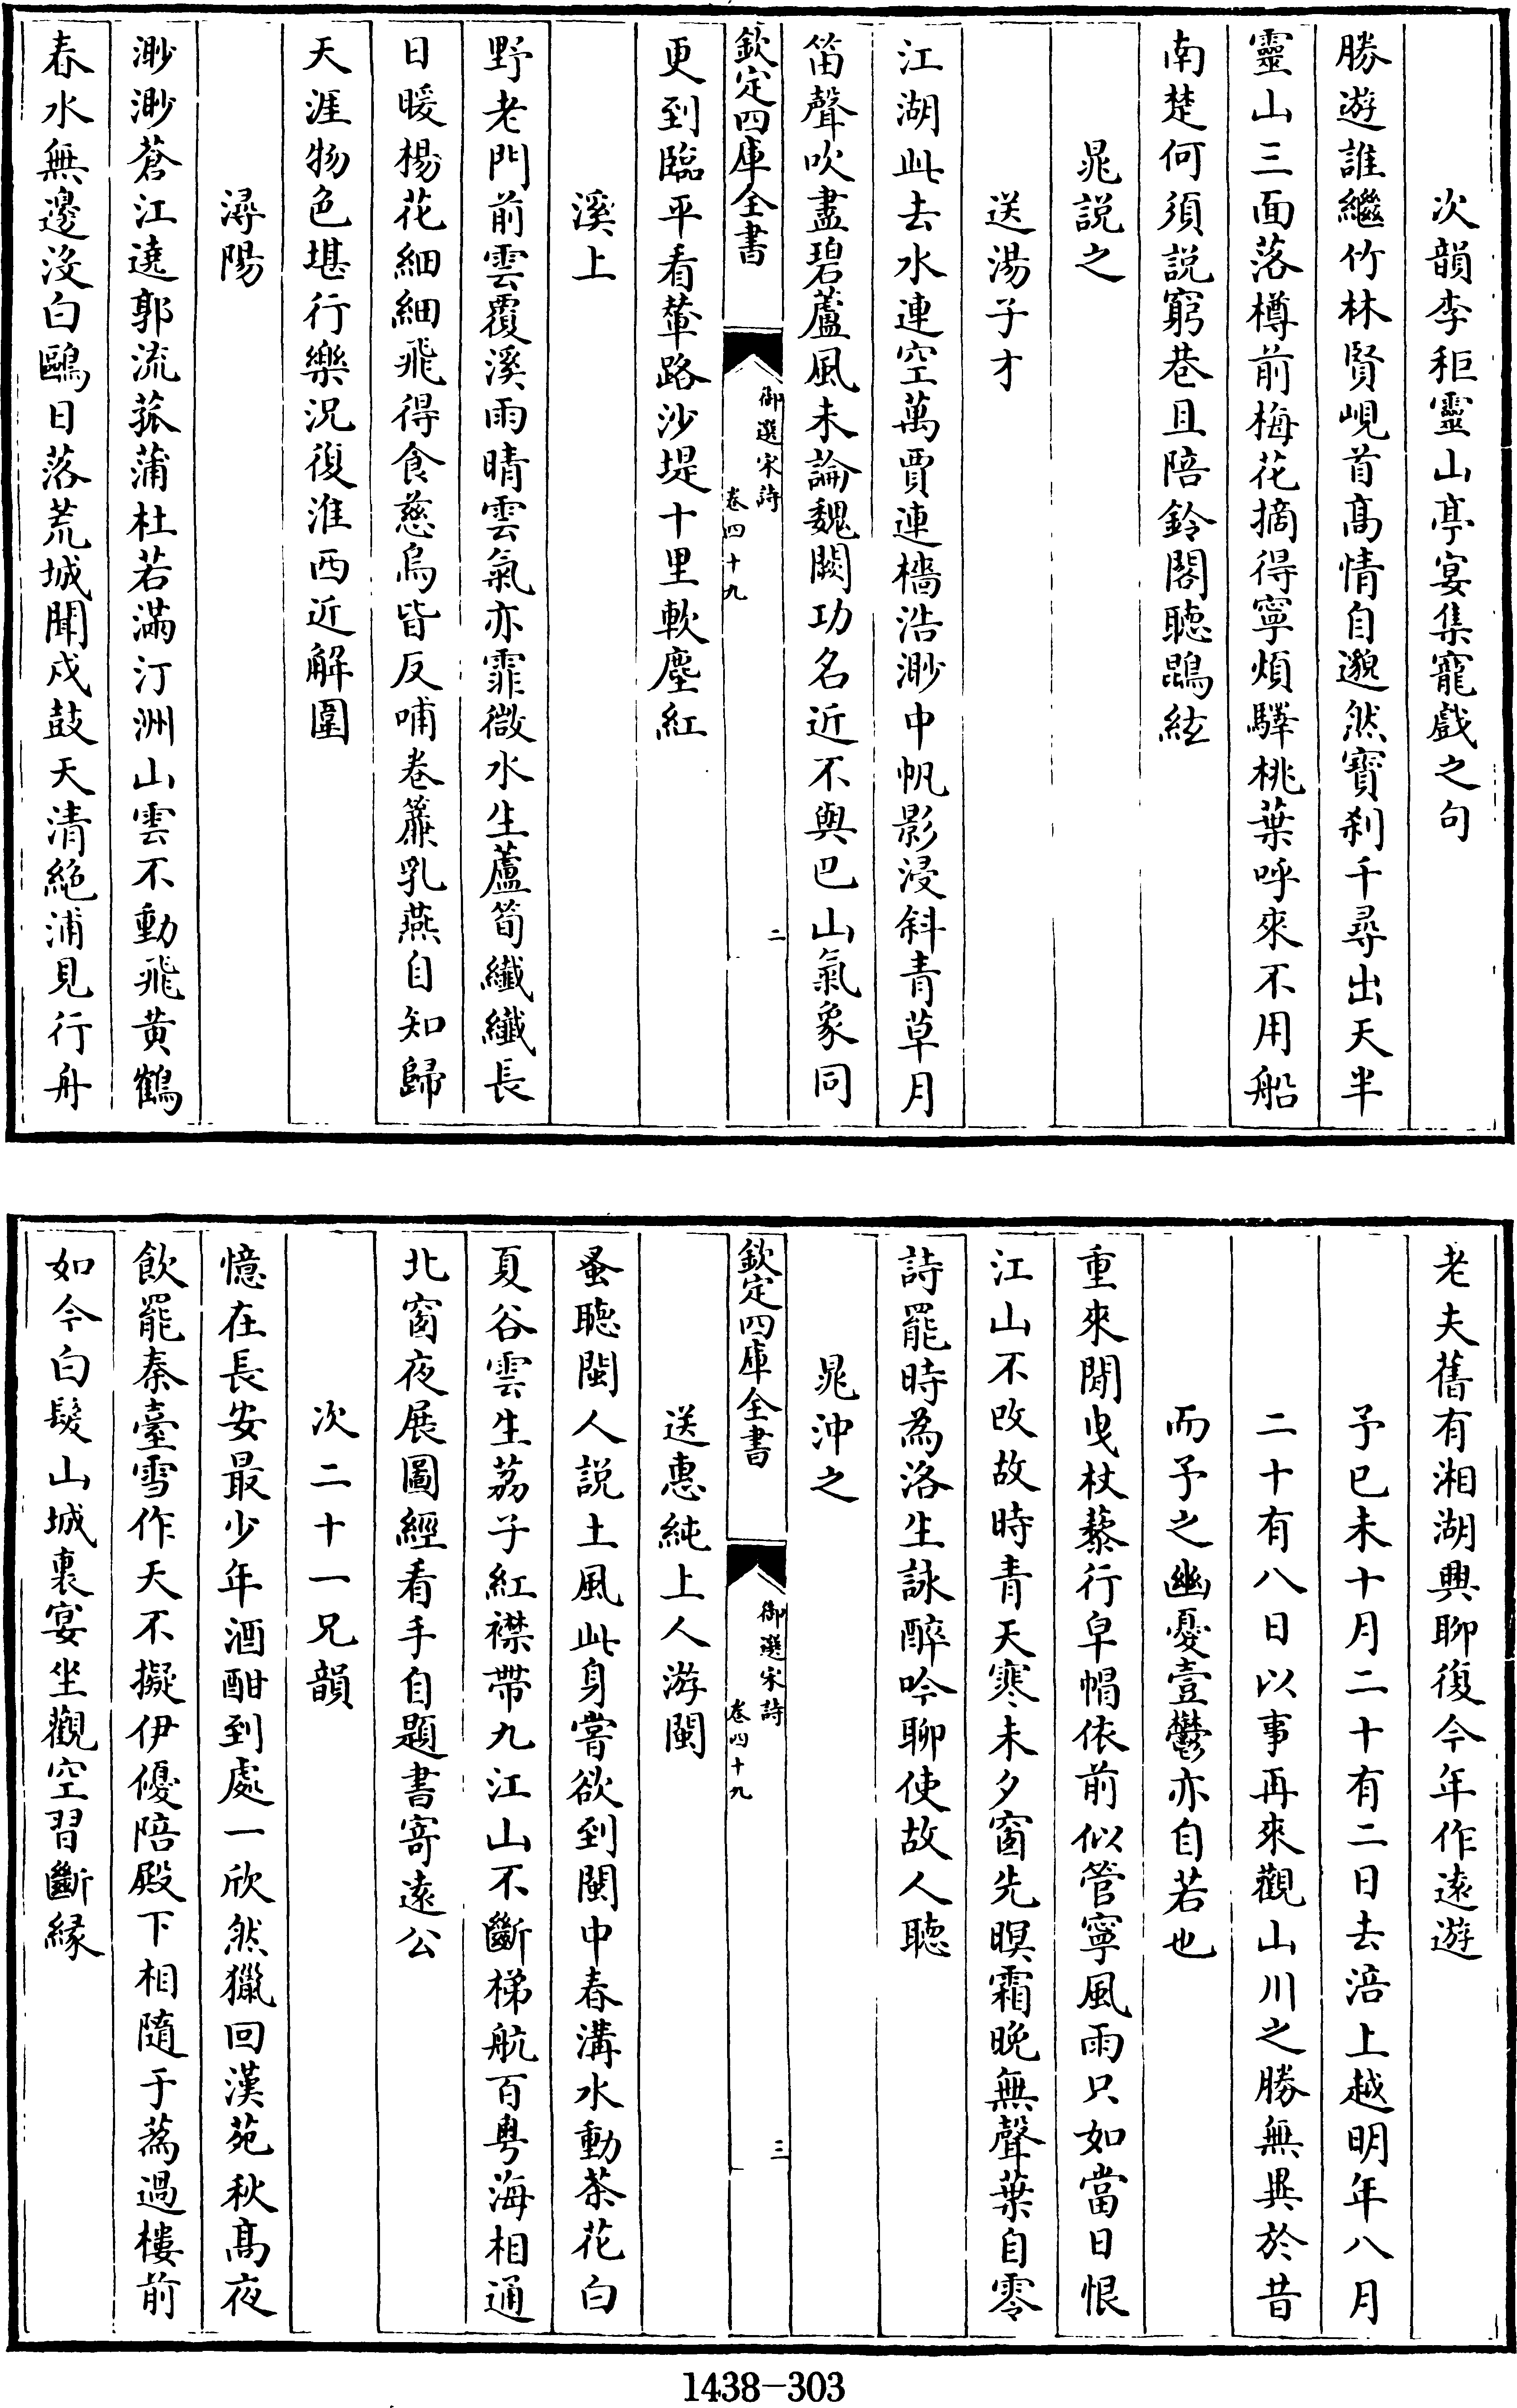 次韻李秬靈山亭宴集寵戲之句
勝遊誰繼竹林賢峴首髙情自邈然寳刹千尋出天半
靈山三面落樽前梅花摘得寧煩驛桃葉呼來不用船
南楚何須説窮巷且陪鈴閣聽鵾絃
晁説之
送湯子才
江湖此去水連空萬賈連檣浩渺中帆影浸斜青草月
笛聲吹盡碧蘆風未論魏闕功名近不與巴山氣象同
欽定四庫全書
御選宋詩
卷四十九
二
更到臨平看輦路沙堤十里軟塵紅
溪上
野老門前雲覆溪雨晴雲氣亦霏微水生蘆筍纖纖長
日暖楊花細細飛得食慈烏皆反哺卷簾乳燕自知歸
天涯物色堪行樂況復淮西近解圍
潯陽
渺渺蒼江遶郭流菰蒲杜若滿汀洲山雲不動飛黄鶴
春水無邊沒白鷗日落荒城聞戍鼓天清絶浦見行舟
老夫舊有湘湖興聊復今年作遠遊
予已未十月二十有二日去涪上越明年八月
二十有八日以事再來觀山川之勝無異於昔
而予之幽憂壹鬱亦自若也
重來閒曳杖藜行皁帽依前似管寧風雨只如當日恨
江山不改故時青天寒未夕窗先暝霜晚無聲葉自零
詩罷時為洛生詠醉吟聊使故人聽
晁沖之
欽定四庫全書
御選宋詩
卷四十九
三
送惠純上人游閩
蚤聽閩人説土風此身嘗欲到閩中春溝水動茶花白
夏谷雲生荔子紅襟帶九江山不斷梯航百粤海相通
北窗夜展圖經看手自題書寄遠公
次二十一兄韻
憶在長安最少年酒酣到處一欣然獵回漢苑秋髙夜
飲罷秦臺雪作天不擬伊優陪殿下相隨于蔿過樓前
如今白髮山城裏宴坐觀空習斷縁
1438-303